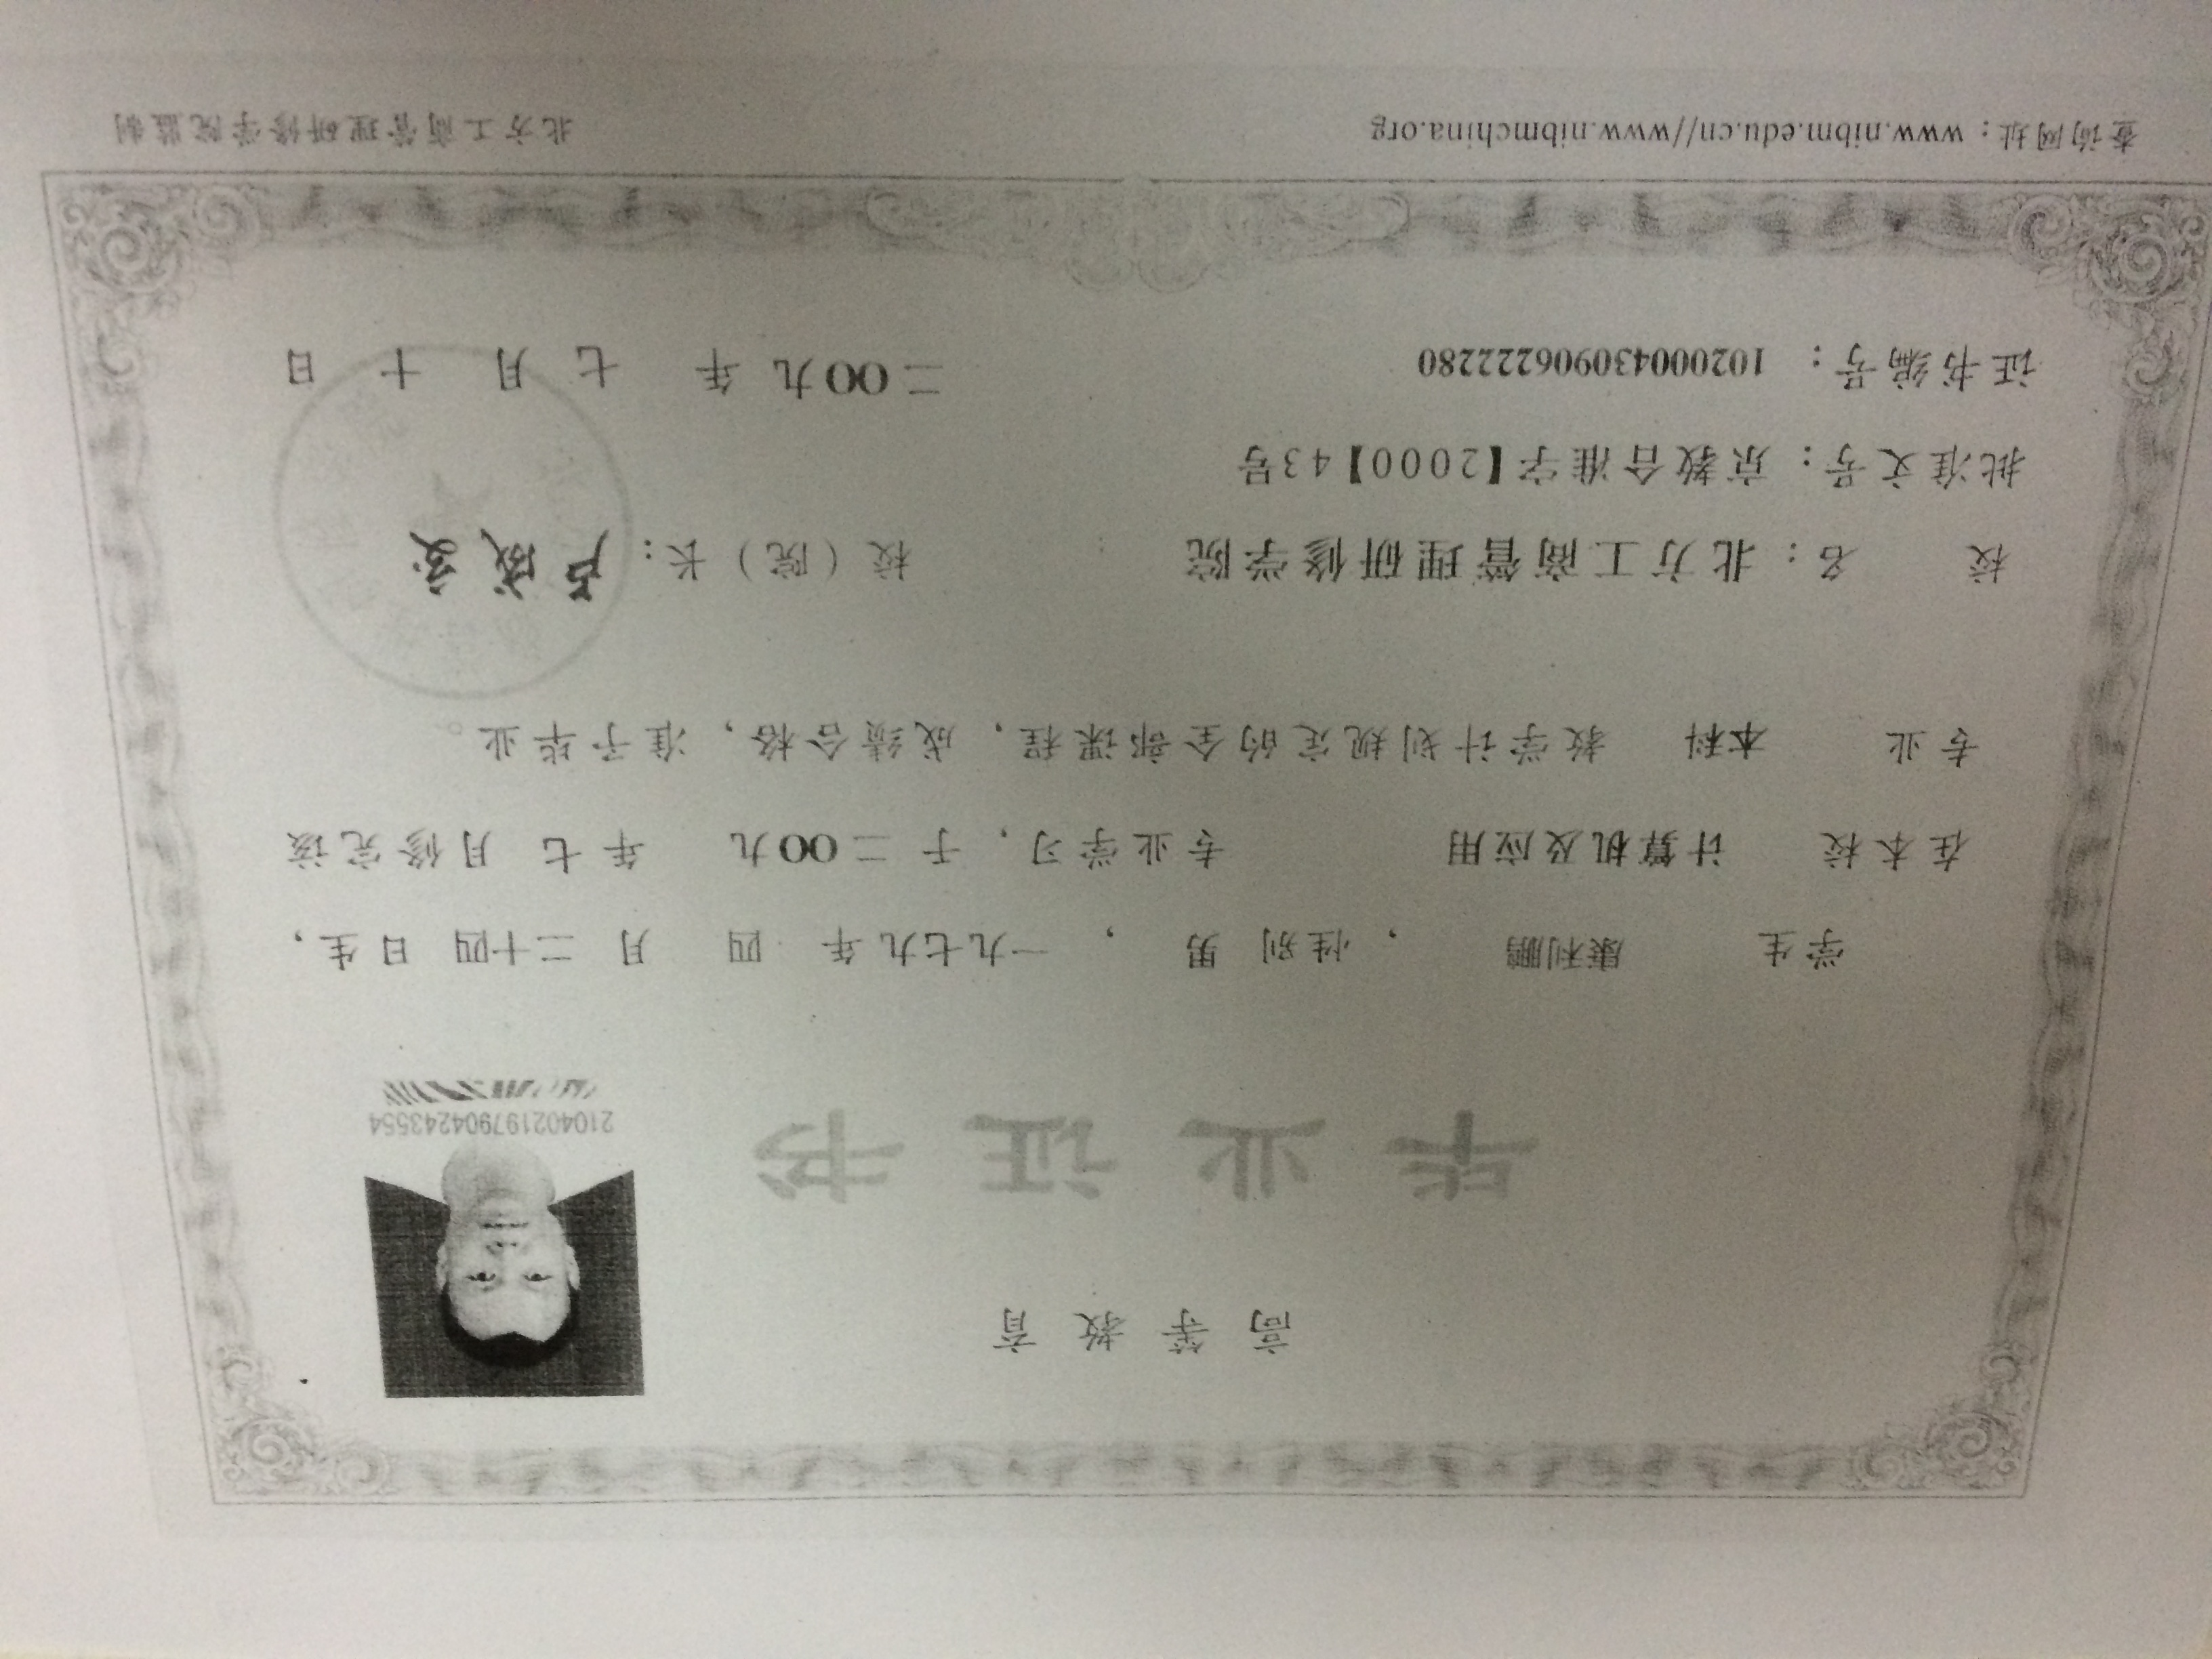 高等教育
毕业证书
210402197904243554
学生 康利鹏 ，性别 男 ，一九七九年 四 月 二十四 日生，
在本校 计算机及应用 专业学习，于 二00九 年 七 月修完该
专业 本科 教学计划规定的全部课程，成绩合格，准予毕业。
校 名：北方工商管理研修学院
校（院）长：
批准文号：京教合准字【2000】43号
证书编号：102000430906222280
二00九 年 七 月 十 日
查询网址：www.nibm.edu.cn//www.nibmchina.org
北方工商管理研修学院监制